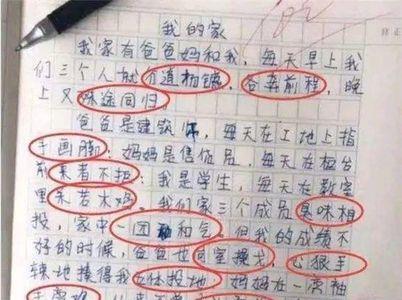 我的家
我家有爸爸妈和我，每天早上我
们三个人就分道扬镳，各奔前程，晚
上又殊途同归。
爸爸是建筑师，每天在工地上指
手画脚；妈妈是售货员，每天在柜台
前来者不拒；我是学生，每天在教室
里呆若木鸡。我们家三个成员臭味相
投，家中一团和气。但我的成绩不
好的时候，爸爸也同室操戈，心狠手
辣地揍得我五体投地，妈妈在一旁袖